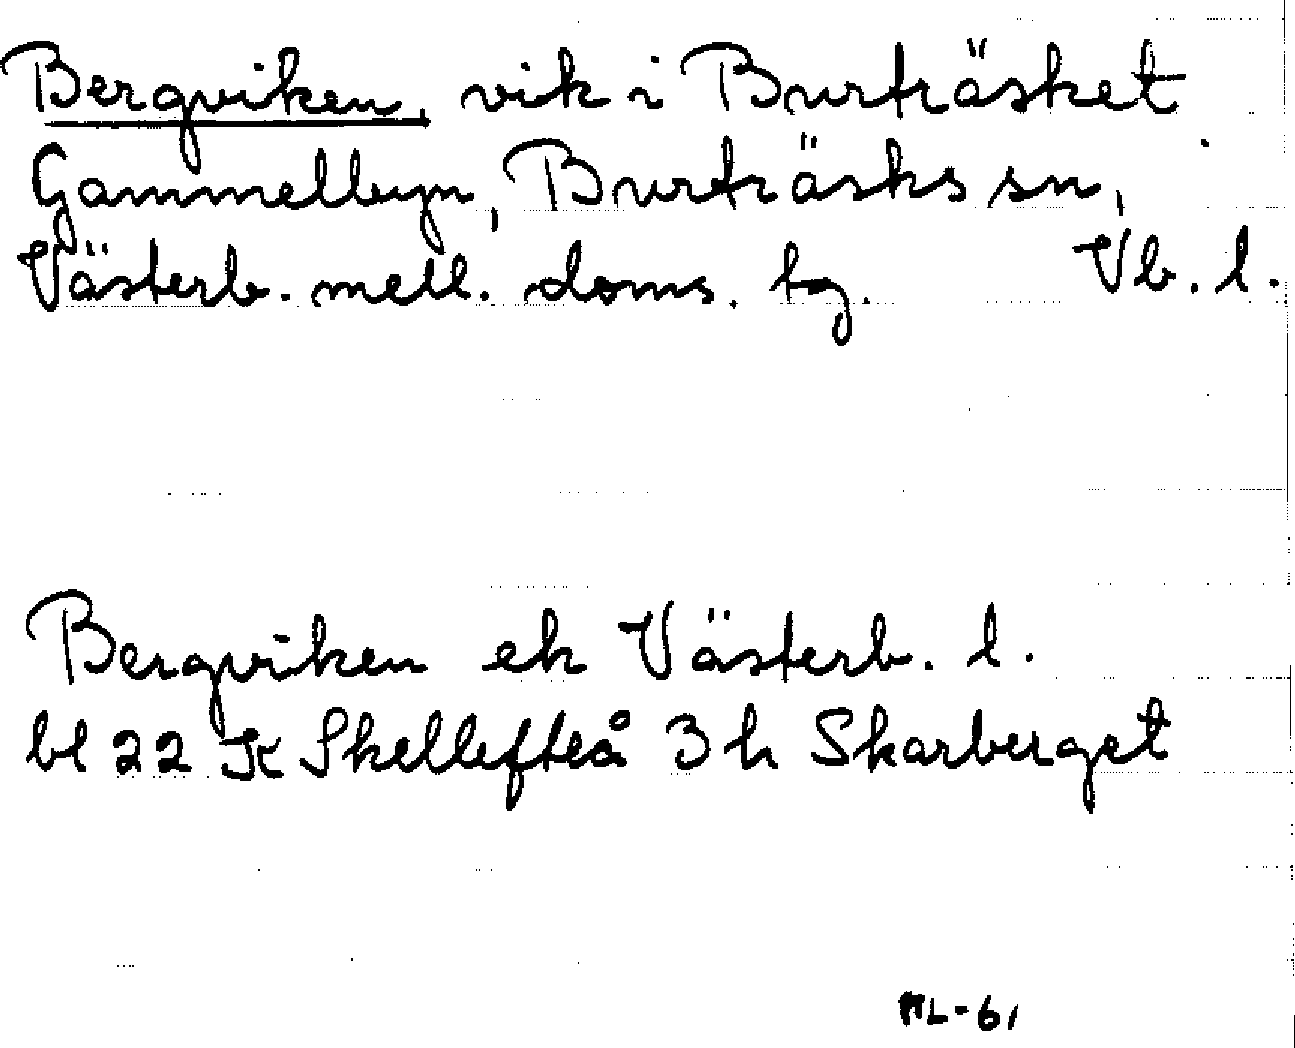 Bergviken, vik i Burträsket
Gammelbyn, Burträsks sn,
Västerb. mell. doms. tg. Vb. l.
Bergviken ek Västerb. l.
bl 22 K Skellefteå 3 h Skarberget
ML-61